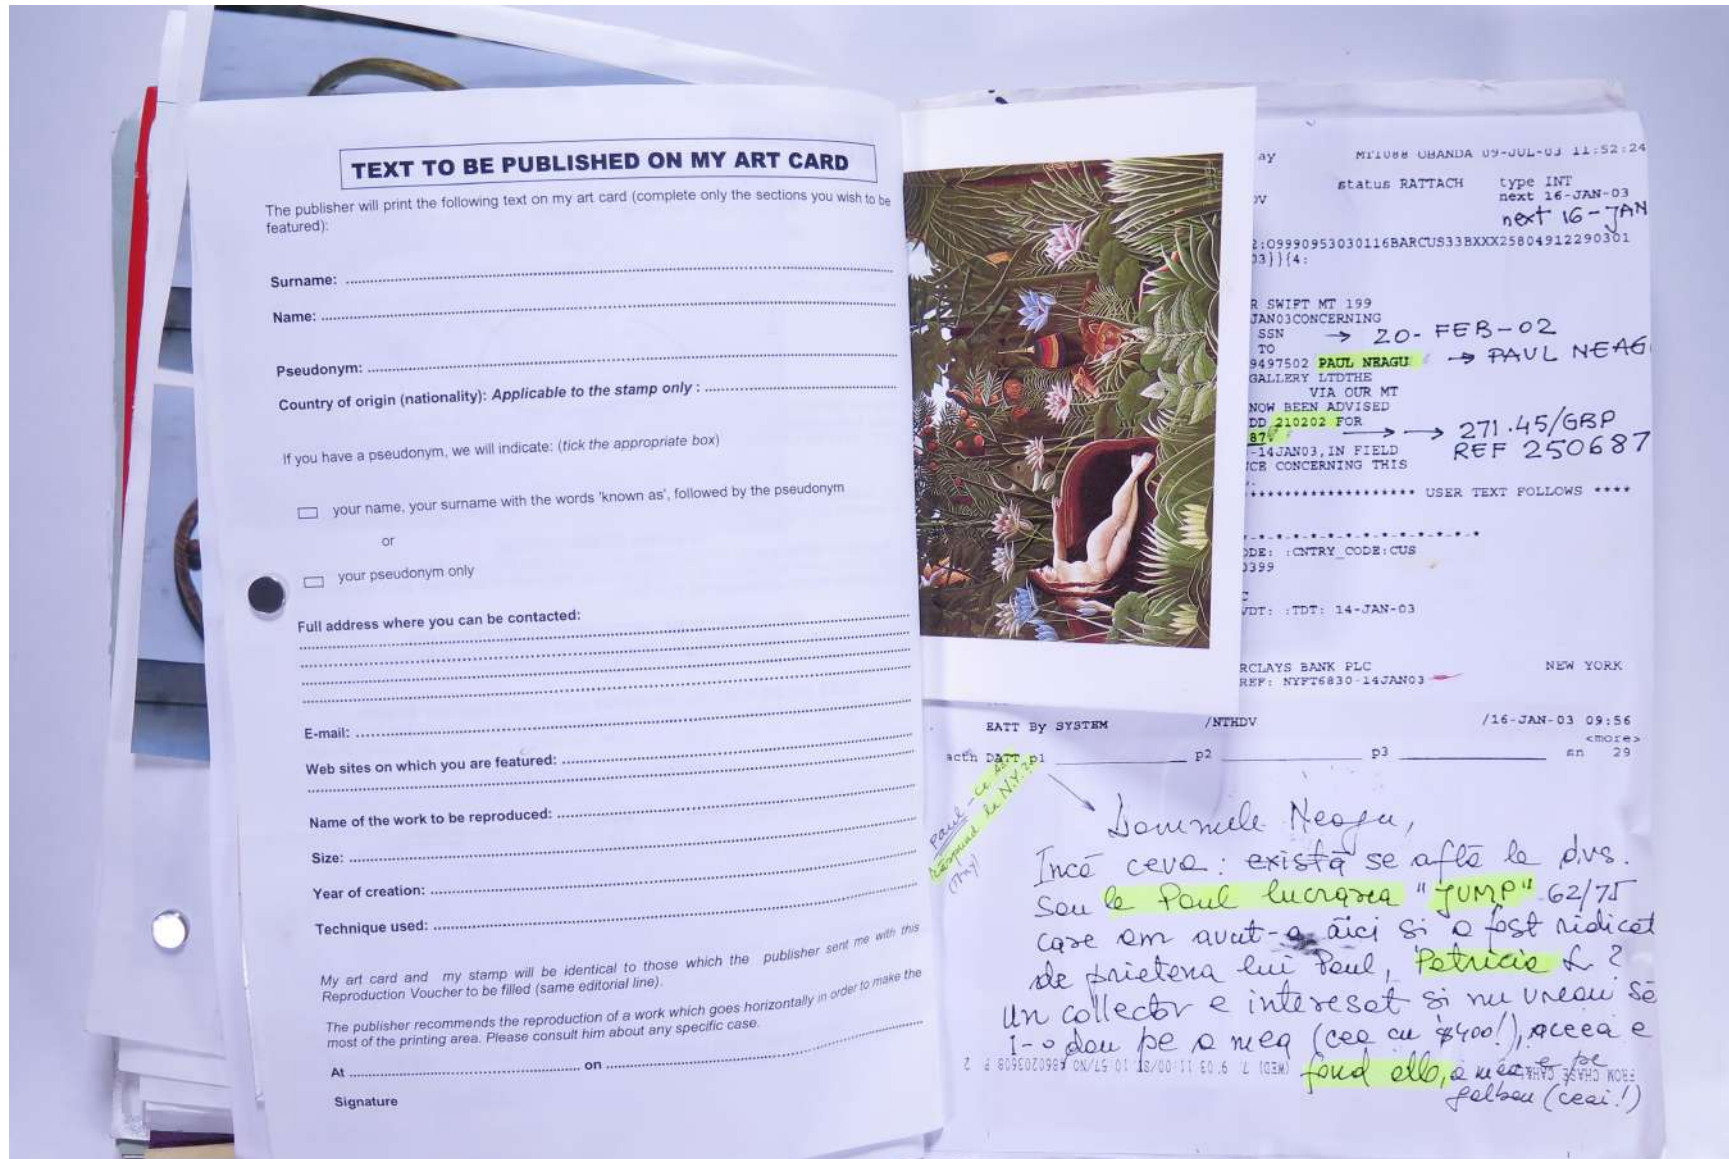 TEXT TO BE PUBLISHED ON MY ART CARD
The publisher will print the following text on my art card (complete only the sections you wish to be
featured):
Surname:
Name:
Pseudonym:
Country of origin (nationality): Applicable to the stamp only :
If you have a pseudonym, we will indicate: (tick the appropriate box)
your name, your surname with the words 'known as', followed by the pseudonym
or
your pseudonym only
Full address where you can be contacted:
E-mail:
Web sites on which you are featured:
Name of the work to be reproduced:
Size:
Year of creation:
Technique used:
My art card and my stamp will be identical to those which the publisher sent me with this
Reproduction Voucher to be filled (same editorial line).
The publisher recommends the reproduction of a work which goes horizontally in order to make the
most of the printing area. Please consult him about any specific case.
At on
Signature
ay MT1088 OBANDA 09-JUL-03 11:52:24
status RATTACH type INT
next 16-JAN-03
next 16-JAN
2:O9990953030116BARCUS33BXXX25804912290301
03}}{4:
R SWIFT MT 199
JAN03CONCERNING
SSN → 20-FEB-02
TO
9497502 PAUL NEAGU → PAUL NEAG
GALLERY LTDTHE
VIA OUR MT
NOW BEEN ADVISED
DD 210202 FOR
87 → 271.45/GBP
-14JAN03,IN FIELD REF 250687
CE CONCERNING THIS
******************* USER TEXT FOLLOWS ****
ODE: :CNTRY_CODE:CUS
0399
VDT: :TDT: 14-JAN-03
RCLAYS BANK PLC NEW YORK
REF: NYFT6830-14JAN03
EATT By SYSTEM /NTHDV /16-JAN-03 09:56
<more>
actn DATT p1 p2 p3 sn 29
Paul - ce
răspund la N.Y.
Domnule Neagu,
Incă ceva: există se află la dvs.
sau la Paul lucrarea "JUMP" 62/75
care am avut-o aici si a fost ridicat
de prietena lui Paul, Patricia L?
Un collector e interesat si nu vreau să
i-o dau pe a mea (cea cu $400!), aceea e
fond alb, a mea e pe
galben (ceai!)
FROM CHASE